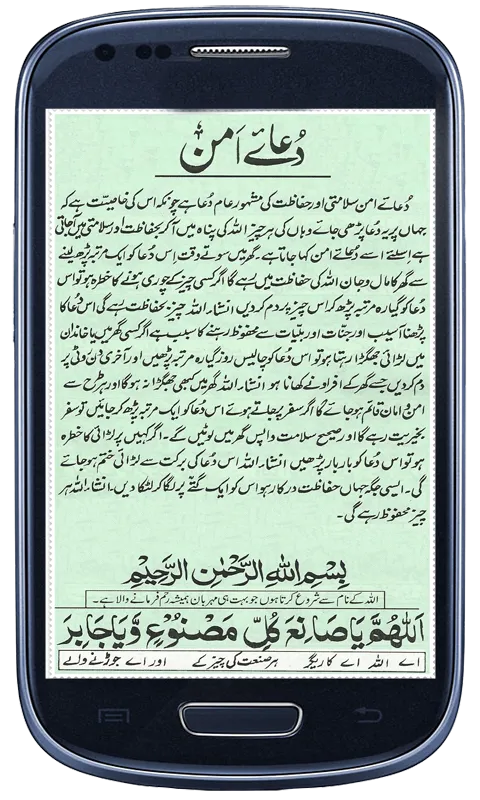 دُعائے اَمن
دُعائے امن سلامتی اور حفاظت کی مشہور عام دُعا ہے چونکہ اس کی خاصیت ہے کہ
جہاں پر یہ دُعا پڑھی جائے وہاں کی ہر چیز اللہ کی پناہ میں آ کر بحفاظت اور سلامتی میں آ جاتی
ہے اسلئے اسے دُعائے امن کہا جاتا ہے۔ گھر میں سوتے وقت اِس دُعا کو ایک مرتبہ پڑھ لینے
سے گھر کا مال و جان اللہ کی حفاظت میں رہے گا اگر کسی چیز کے چوری ہونے کا خطرہ ہو تو اس
دُعا کو گیارہ مرتبہ پڑھ کر اس چیز پر دم کر دیں انشاء اللہ چیز بحفاظت رہے گی اس دُعا کا
پڑھنا آسیب اور جِنّات اور بلیّات سے محفوظ رہنے کا سبب ہے اگر کسی گھر میں یا خاندان
میں لڑائی جھگڑا رہتا ہو تو اس دُعا کو چالیس روز گیارہ مرتبہ پڑھیں اور آخری دن روٹی پر
دم کر دیں جسے گھر کے افراد نے کھانا ہو انشاء اللہ گھر میں کبھی جھگڑا نہ ہو گا اور ہر طرح سے
امن و امان قائم ہو جائے گا اگر سفر پر جاتے ہوئے اس دُعا کو ایک مرتبہ پڑھ کر جائیں تو سفر
بخیریت رہے گا اور صحیح سلامت واپس گھر میں لوٹیں گے۔ اگر کہیں پر لڑائی کا خطرہ
ہو تو اس دُعا کو بار بار پڑھیں انشاء اللہ اس دُعا کی برکت سے لڑائی ختم ہو جائے
گی۔ ایسی جگہ جہاں حفاظت درکار ہو اس کو ایک گتے پر لگا کر لٹکا دیں۔ انشاء اللہ ہر
چیز محفوظ رہے گی۔
بِسْمِ اللهِ الرَّحْمٰنِ الرَّحِيْمِ
اللہ کے نام سے شروع کرتا ہوں جو بہت ہی مہربان ہمیشہ رحم فرمانے والا ہے۔
اَللّٰهُمَّ يَا صَانِعَ كُلِّ مَصْنُوْعٍ وَّيَا جَابِرَ
اے اللہ اے کاریگر ہر صنعت کی چیز کے اور اے جوڑنے والے